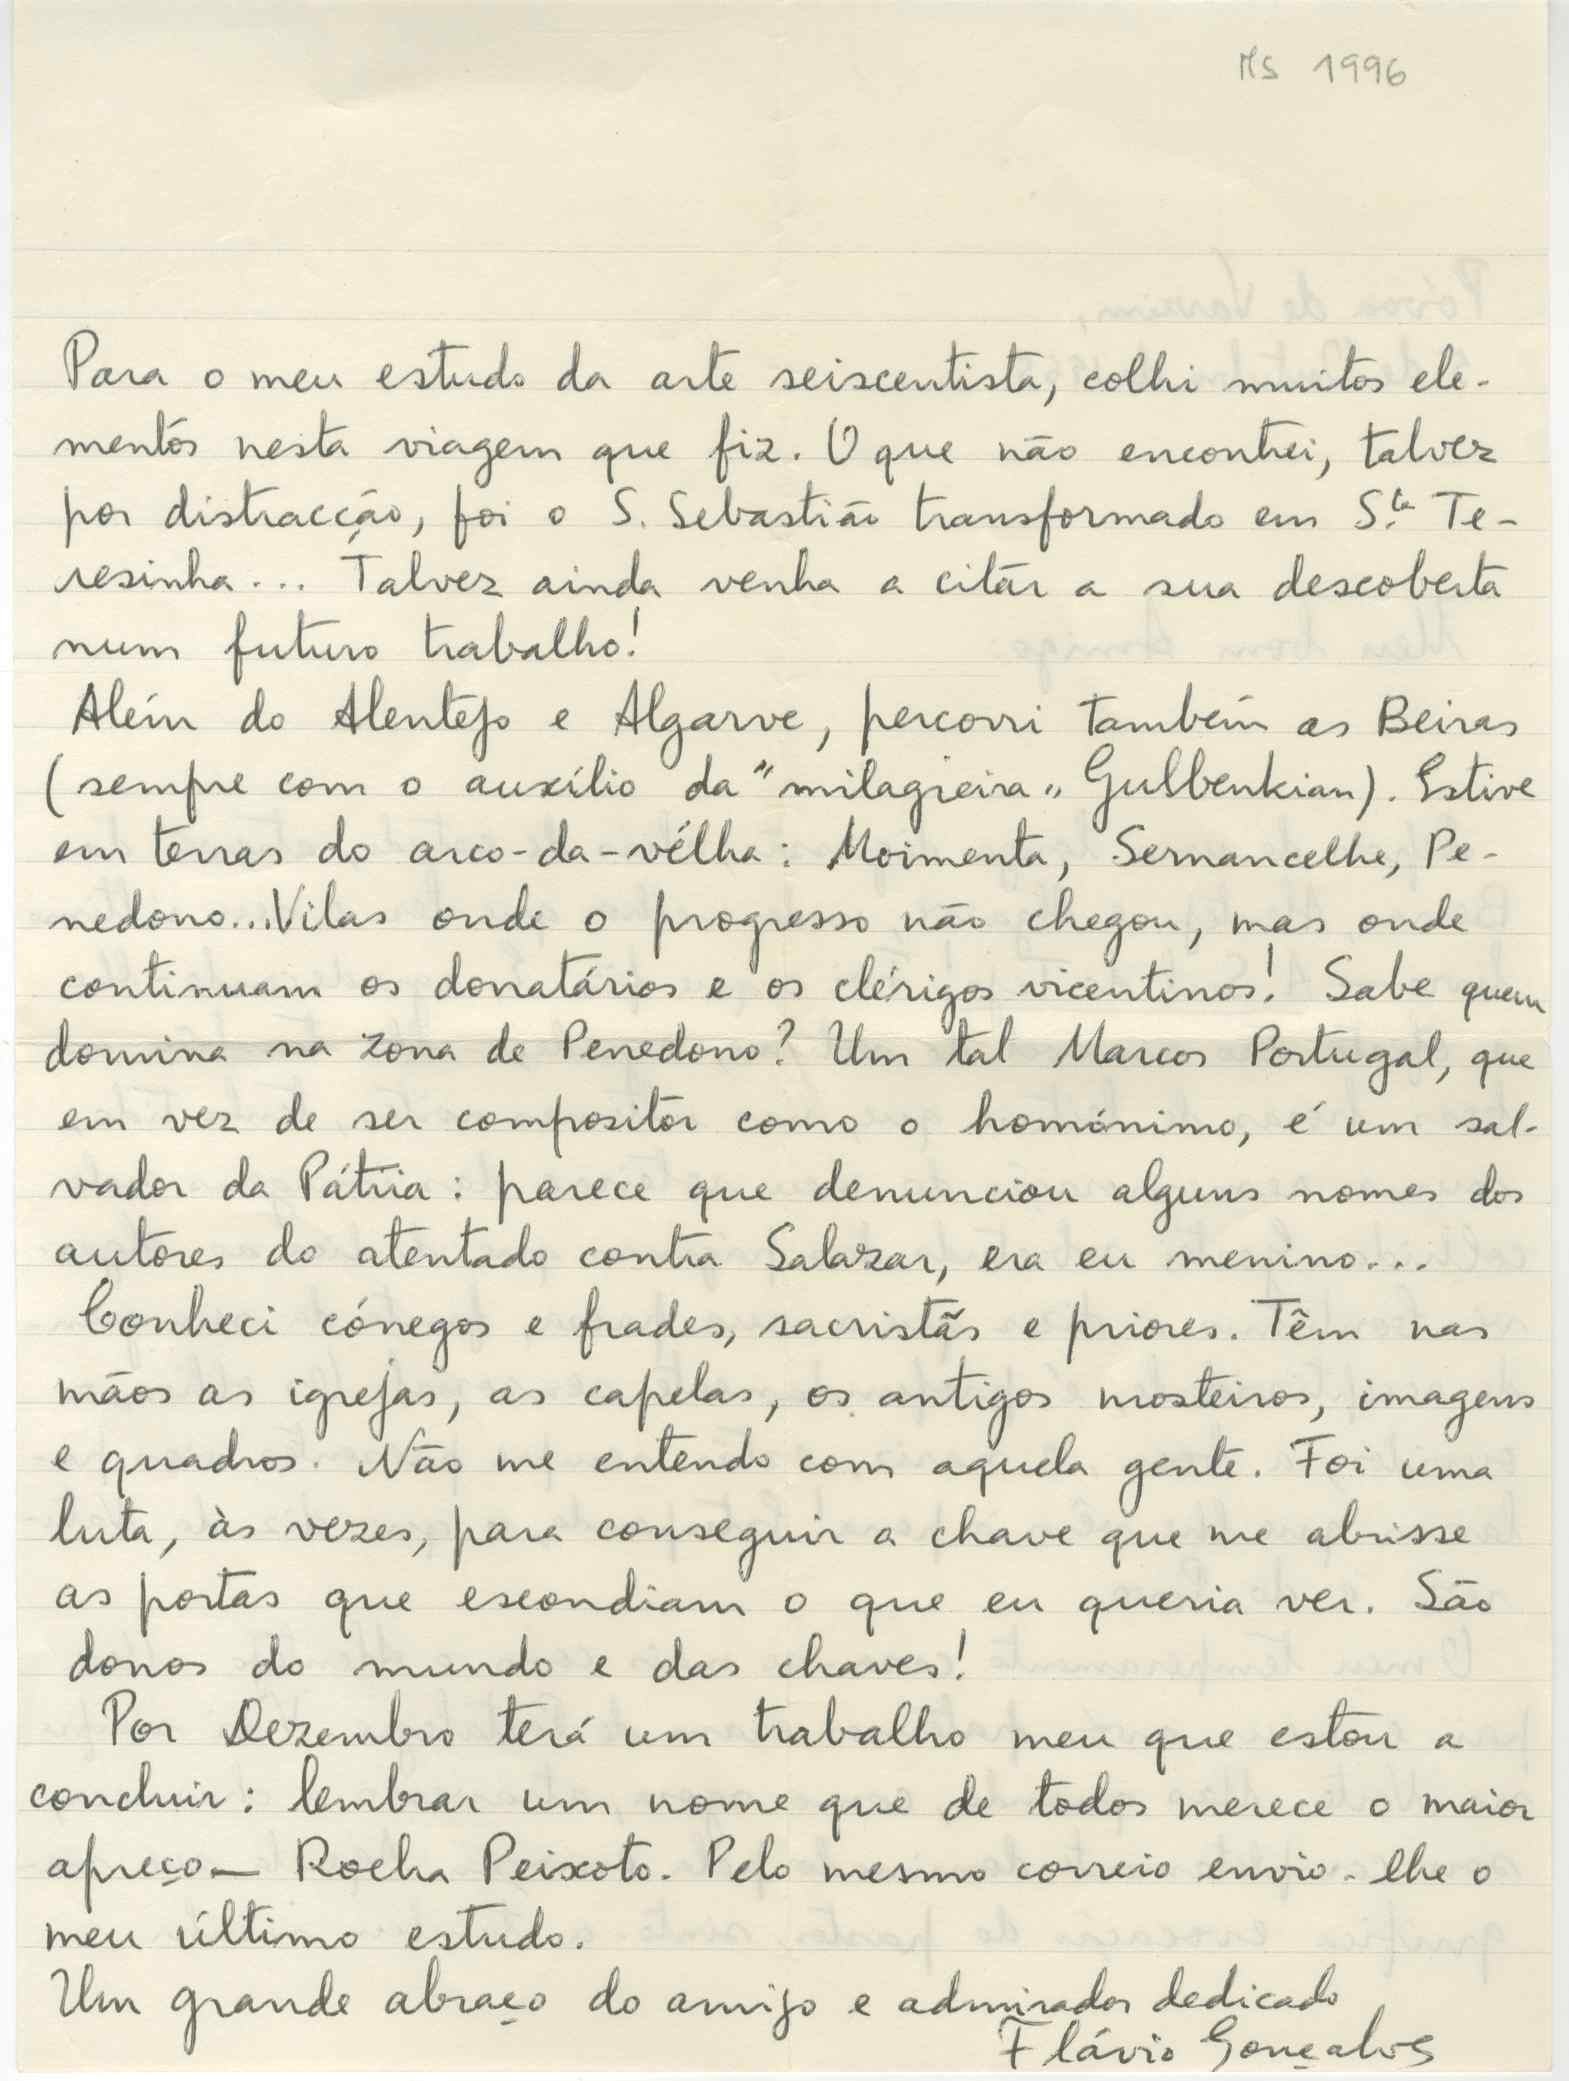 MS 1996
Para o meu estudo da arte seiscentista, colhi muitos ele-
mentos nesta viagem que fiz. O que não encontrei, talvez
por distracção, foi o S. Sebastião transformado em S.ta Te-
resinha... Talvez ainda venha a citar a sua descoberta
num futuro trabalho!
Além do Alentejo e Algarve, percorri também as Beiras
(sempre com o auxílio da "milagreira" Gulbenkian). Estive
em terras do arco-da-vélha: Moimenta, Sernancelhe, Pe-
nedono...Vilas onde o progresso não chegou, mas onde
continuam os donatários e os clérigos vicentinos! Sabe quem
domina na zona de Penedono? Um tal Marcos Portugal, que
em vez de ser compositor como o homónimo, é um sal-
vador da Pátria: parece que denunciou alguns nomes dos
autores do atentado contra Salazar, era eu menino...
Conheci cónegos e frades, sacristãs e priores. Têm nas
mãos as igrejas, as capelas, os antigos mosteiros, imagens
e quadros. Não me entendo com aquela gente. Foi uma
luta, às vezes, para conseguir a chave que me abrisse
as portas que escondiam o que eu queria ver. São
donos do mundo e das chaves!
Por Dezembro terá um trabalho meu que estou a
concluir: lembrar um nome que de todos merece o maior
apreço — Rocha Peixoto. Pelo mesmo correio envio-lhe o
meu último estudo.
Um grande abraço do amigo e admirador dedicado
Flávio Gonçalves